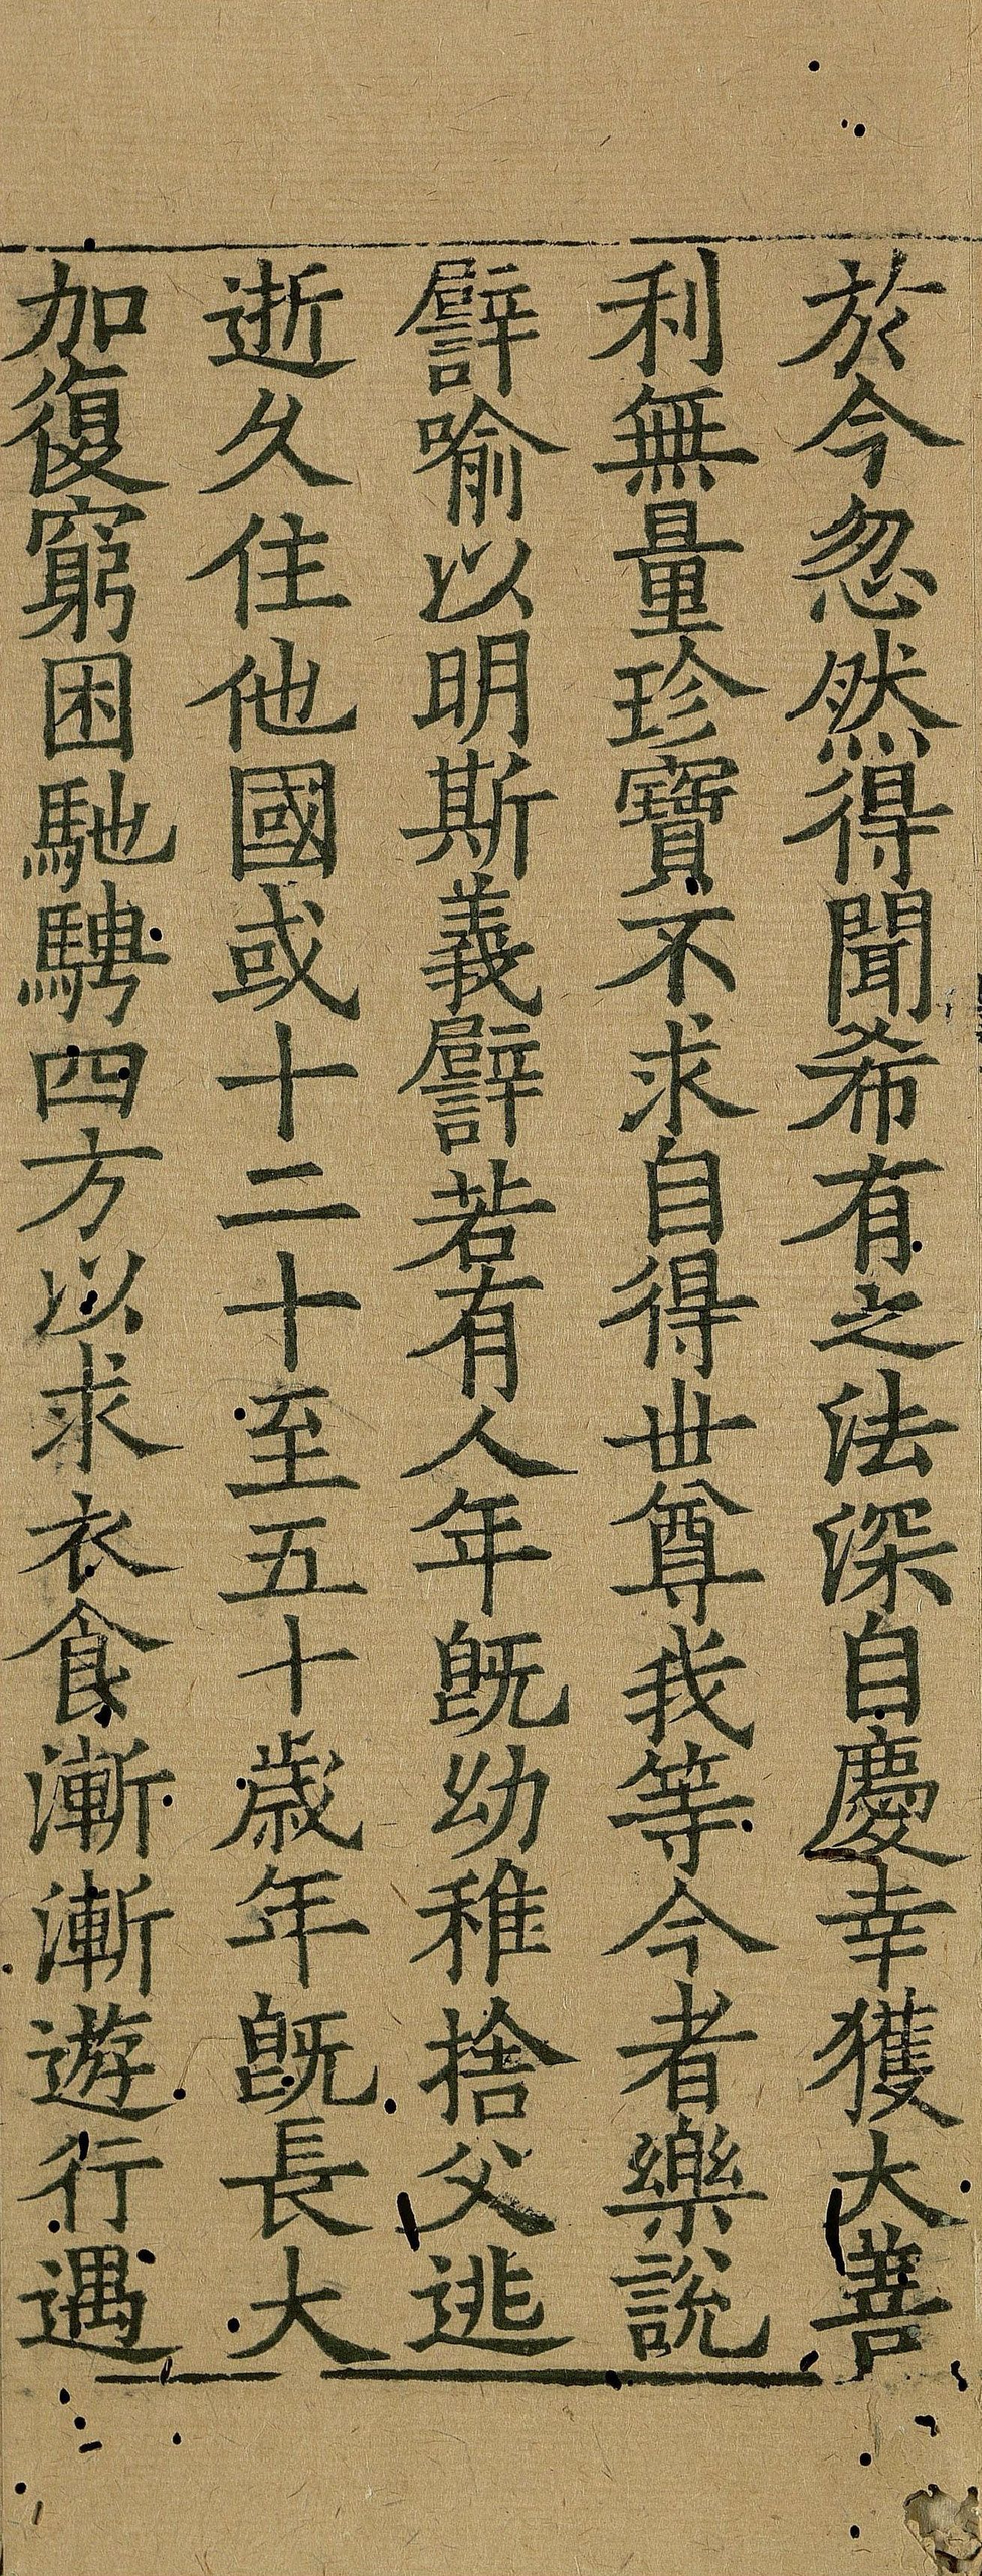 於今忽然得聞希有之法深自慶幸獲大善
利無量珍寶不求自得世尊我等今者樂說
譬喻以明斯義譬若有人年旣幼稚捨父逃
逝久住他國或十二十至五十歲年旣長大
加復窮困馳騁四方以求衣食漸漸遊行遇